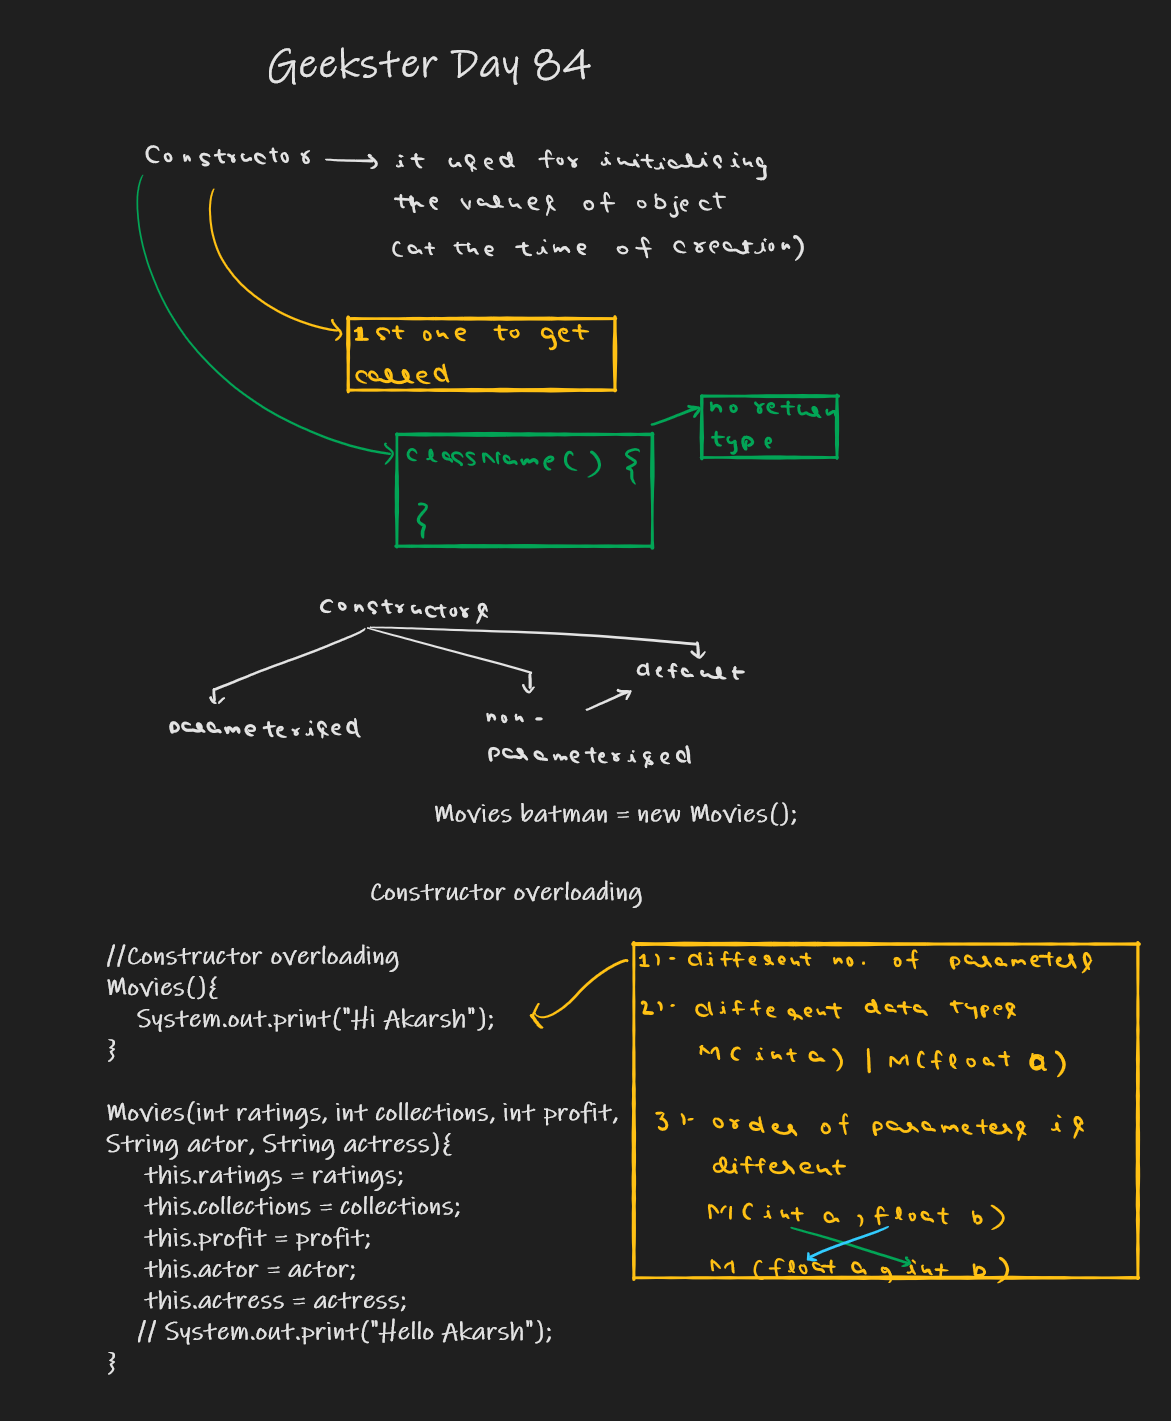 Geekster Day 84
Constructor → it used for initialising
the values of object
(at the time of creation)
1st one to get
called
no return
type
className() {
}
constructors
default
parameterised
non-
parameterised
Movies batman = new Movies();
Constructor overloading
//Constructor overloading
Movies(){
System.out.print("Hi Akarsh");
}
Movies(int ratings, int collections, int profit,
String actor, String actress){
this.ratings = ratings;
this.collections = collections;
this.profit = profit;
this.actor = actor;
this.actress = actress;
// System.out.print("Hello Akarsh");
}
1)- different no. of parameters
2)- different data types
M(int a) | M(float a)
3)- order of parameters is
different
M(int a, float b)
M (float a, int b)